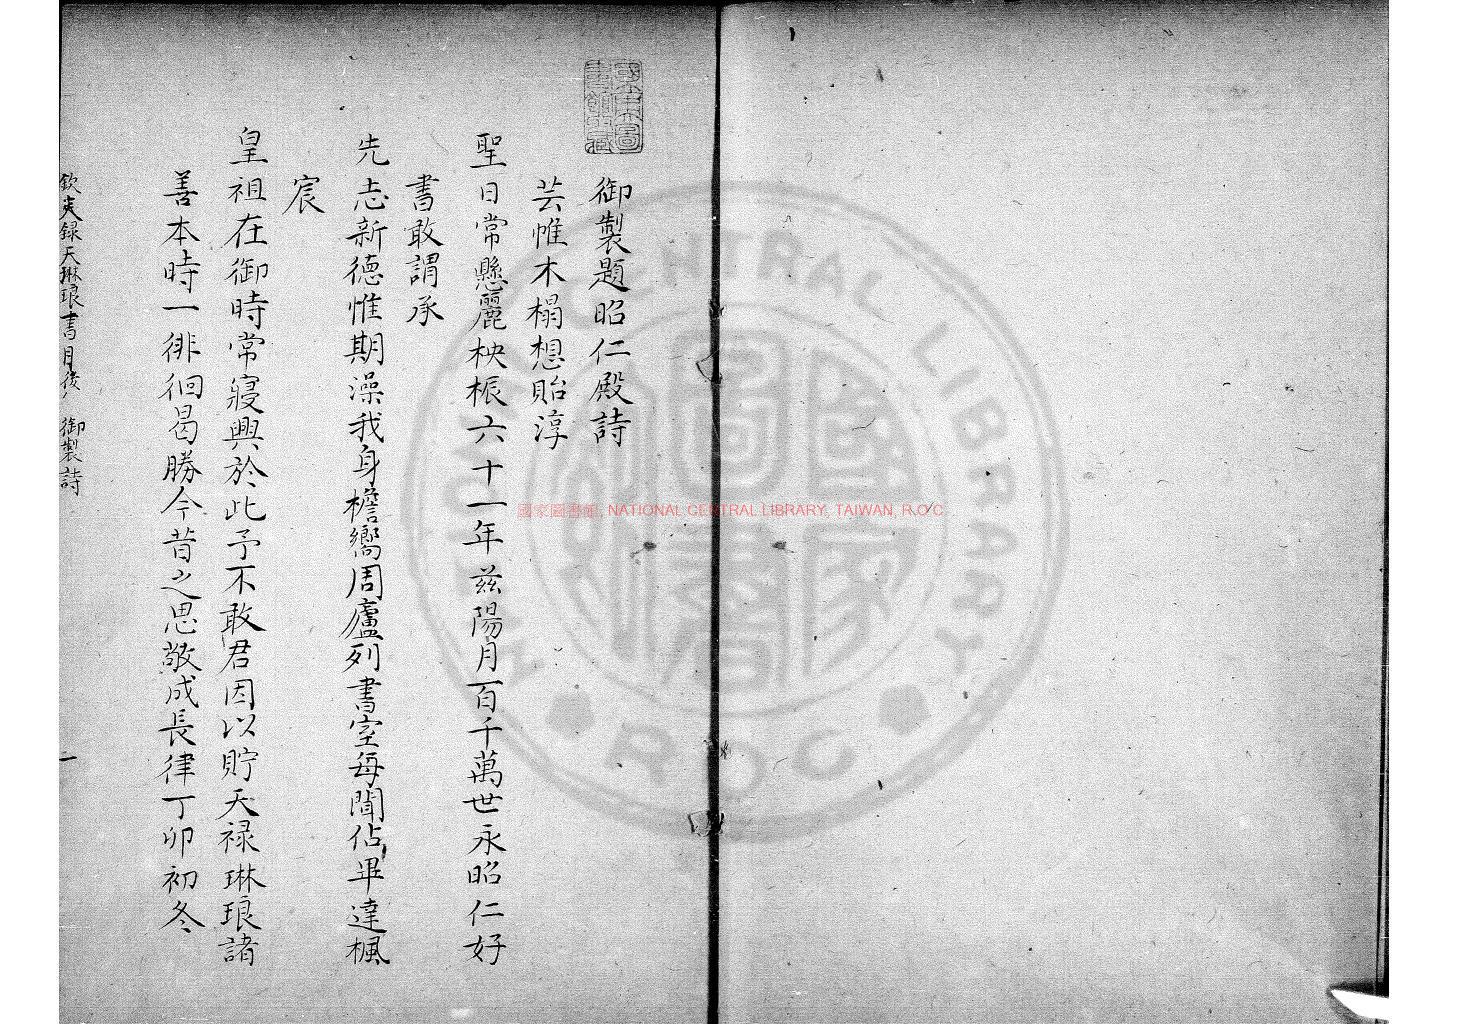 御製題昭仁殿詩
芸帷木榻想貽淳
聖日常懸麗柍桭六十一年茲陽月百千萬世永昭仁好
書敢謂承
先志新德惟期澡我身檐嚮周廬列書室每聞佔畢達楓
宸
皇祖在御時常寢興於此予不敢君因以貯天祿琳琅諸
善本時一徘徊曷勝今昔之思敬成長律丁卯初冬
天 琳琅書目後 御製詩
一
國家圖書館藏
國家圖書館, NATIONAL CENTRAL LIBRARY, TAIWAN, R.O.C
NATIONAL CENTRAL LIBRARY
R.O.C
國家圖書